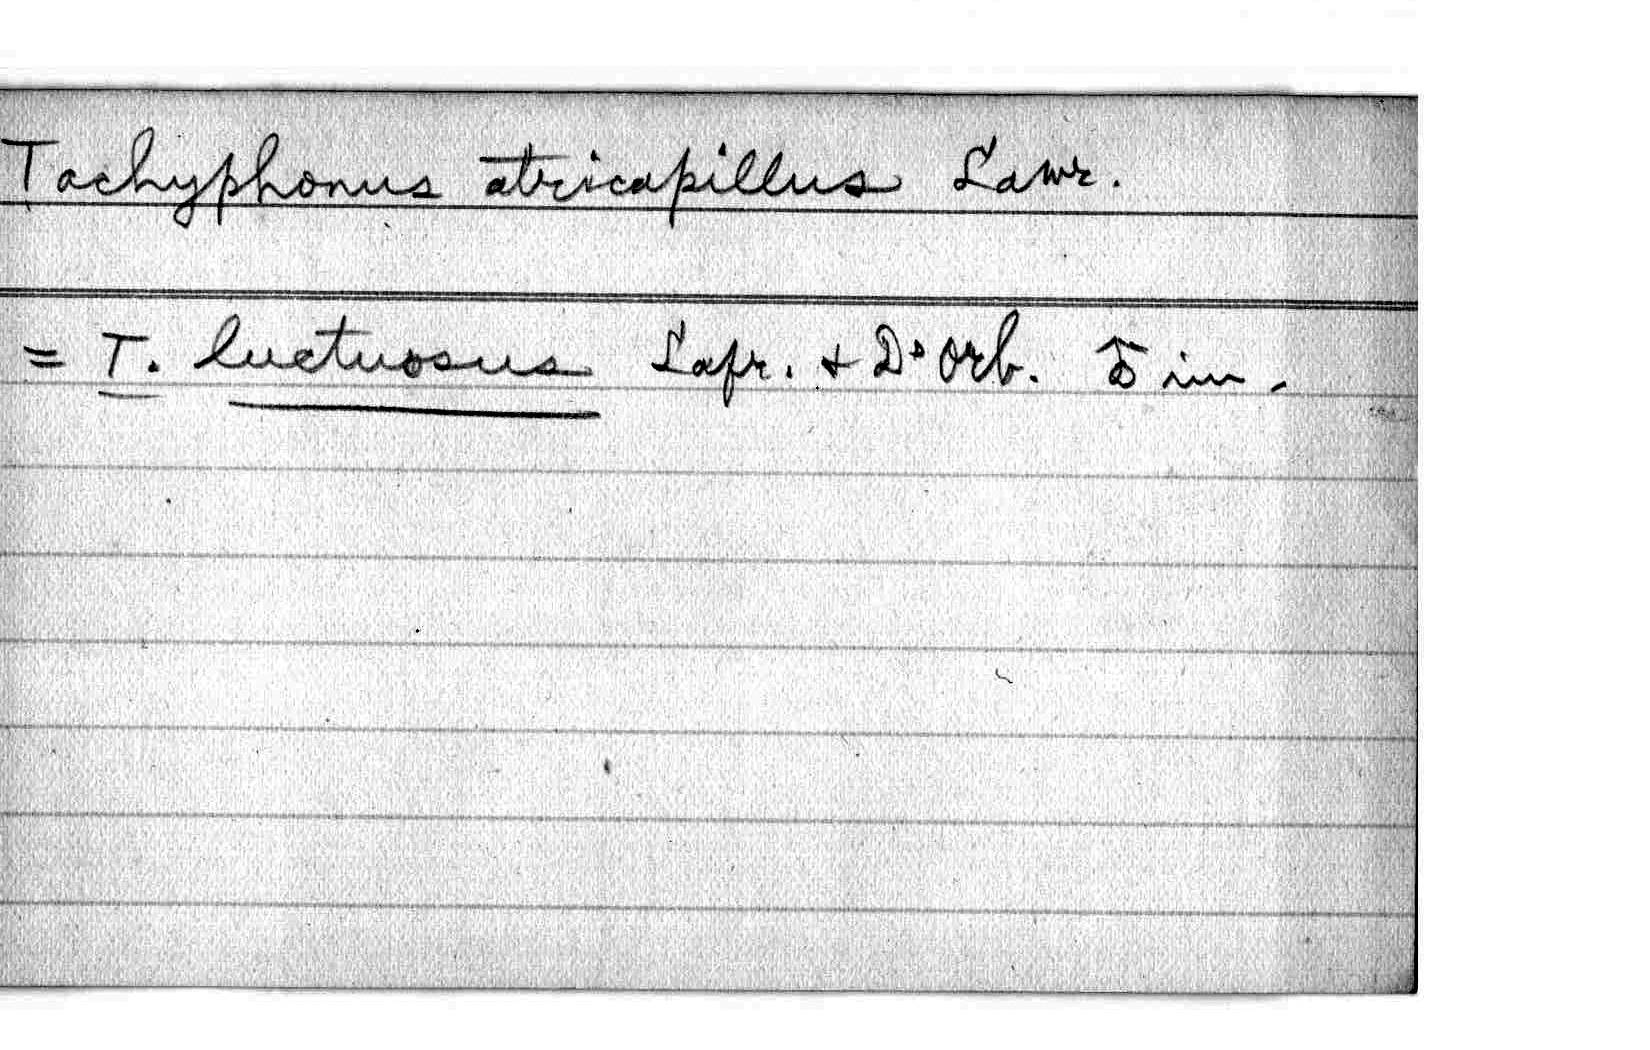 Tachyphonus atricapillus Lawr.
= T. luctuosus Lafr. & D'Orb. ♂ im.